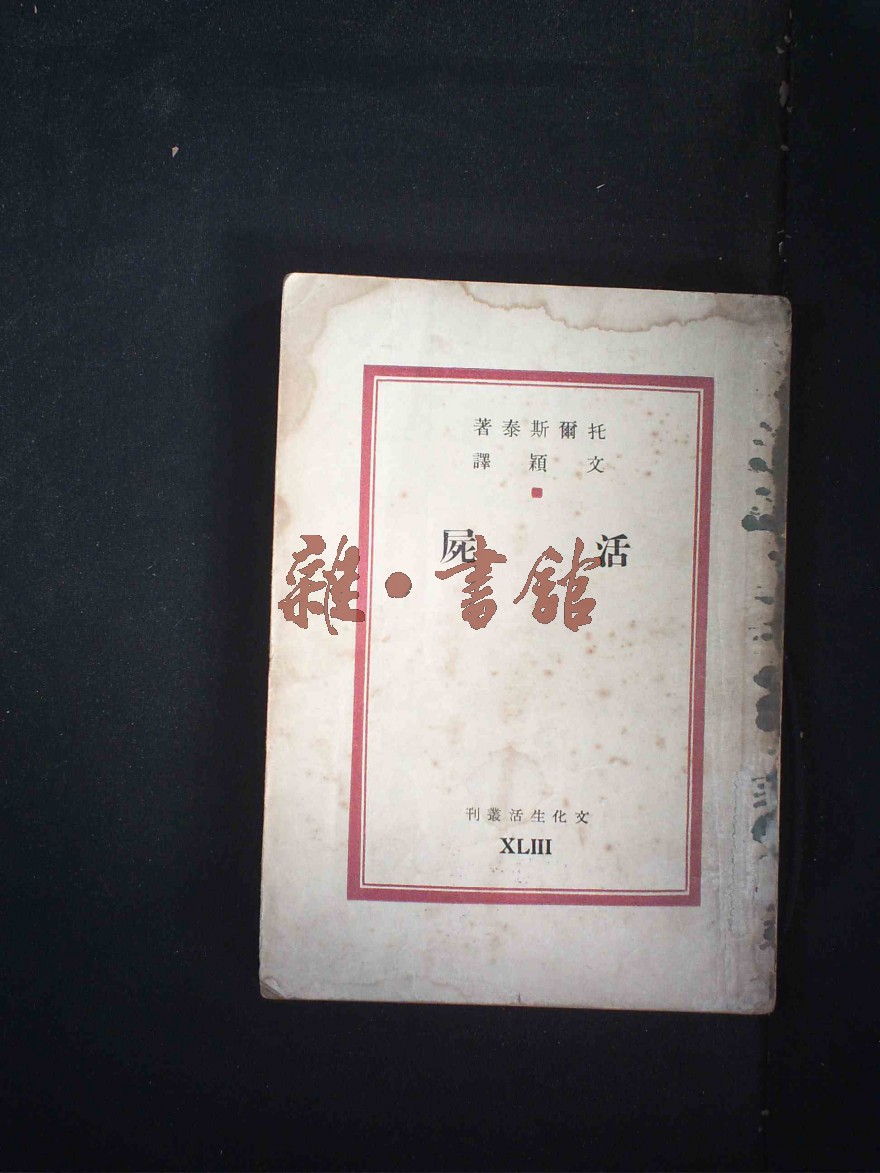 托爾斯泰著
文穎譯
活屍
雜·書舘
文化生活叢刊
XLIII